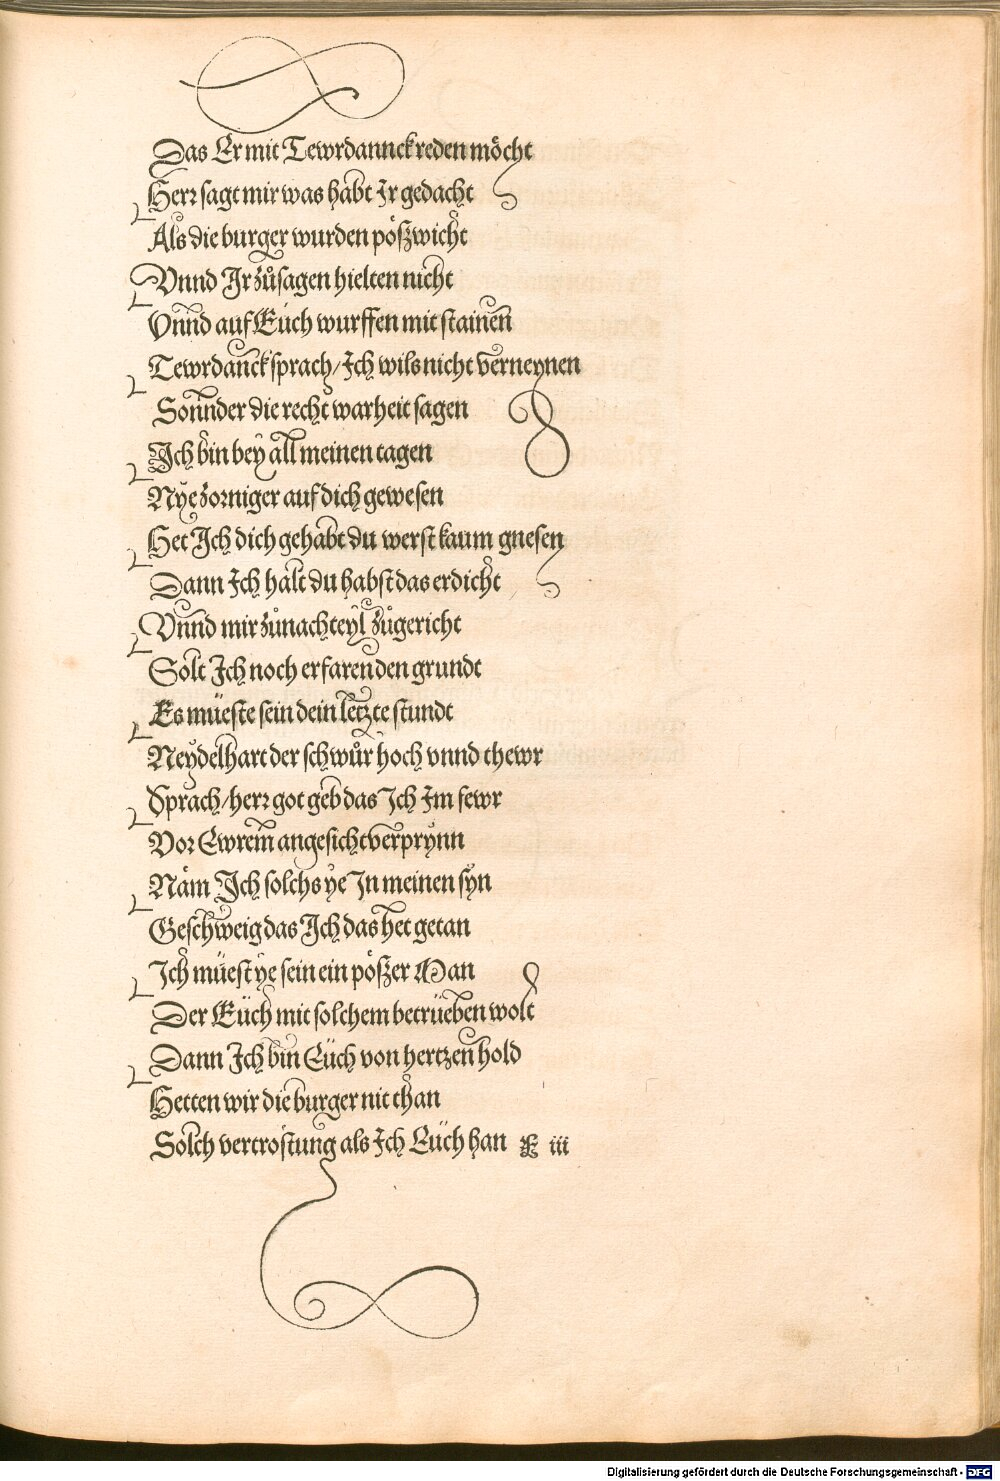 Das Er mit Tewrdannck reden möcht
Herr sagt mir was habt Ir gedacht
Als die burger wurden pößwicht
Vnnd Ir zůsagen hielten nicht
Vnnd auf Eüch wurffen mit stainen
Tewrdanck sprach/Ich wils nicht verneynen
Sonnder die recht warheit sagen
Ich bin bey all meinen tagen
Nye zorniger auf dich gewesen
Het Ich dich gehabt du werst kaum gnesen
Dann Ich halt du habst das erdicht
Vnnd mir zůnachteyl zůgericht
Solt Ich noch erfaren den grundt
Es müeste sein dein letzte stundt
Neydelhart der schwůr hoch vnnd thewr
Sprach/herr got geb das Ich Im fewr
Vor Ewrem angesicht verprynn
Näm Ich solchs ye In meinen syn
Geschweig das Ich das het getan
Ich müest ye sein ein pößer Man
Der Eüch mit solchem betrüeben wolt
Dann Ich bin Eüch von hertzen hold
Hetten wir die burger nit than
Solch vertröstung als Ich Eüch han E iii
Digitalisierung gefördert durch die Deutsche Forschungsgemeinschaft - DFG